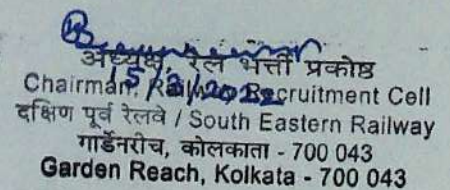 अध्यक्ष, रेल भर्त्ती प्रकोष्ठ
15/3/2022
Chairman, Railway Recruitment Cell
दक्षिण पूर्व रेलवे / South Eastern Railway
गार्डेनरीच, कोलकाता - 700 043
Garden Reach, Kolkata - 700 043